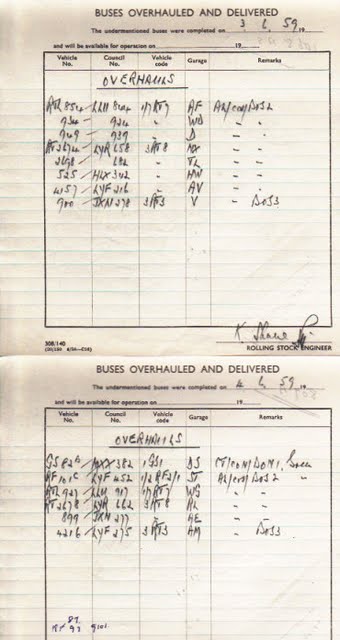 BUSES OVERHAULED AND DELIVERED
The undermentioned buses were completed on 3. 6. 59. 19
and will be available for operation on 19
Vehicle No. Council No. Vehicle code Garage Remarks
OVERHAULS
RTL 854 LLU 844 1/7RT7 AF
934 924 " WD " "
949 939 " D " "
RT 2674 LYR 658 3RT8
2698 682 " TL " "
525 HLX 342 " HW " "
4157 LYF 216 " AV " "
900 JXN 278 3RT3 V " DOS3
K. Shave
308/140
ROLLING STOCK ENGINEER
BUSES OVERHAULED AND DELIVERED
The undermentioned buses were completed on 4. 6. 59. 19
and will be available for operation on 19
Vehicle No. Council No. Vehicle code Garage Remarks
OVERHAULS
GS 82 MXX 382 1GS1 DS Green
RF 101 LYF 452 1/2RF2/1 ST "
RTL 927 LLU 917 1/7RT7 WG " "
RT 2678 LYR 662 3RT8 RL " "
899 JXN 277 " AE " "
4216 LYF 275 3RT3 AM " DOS3